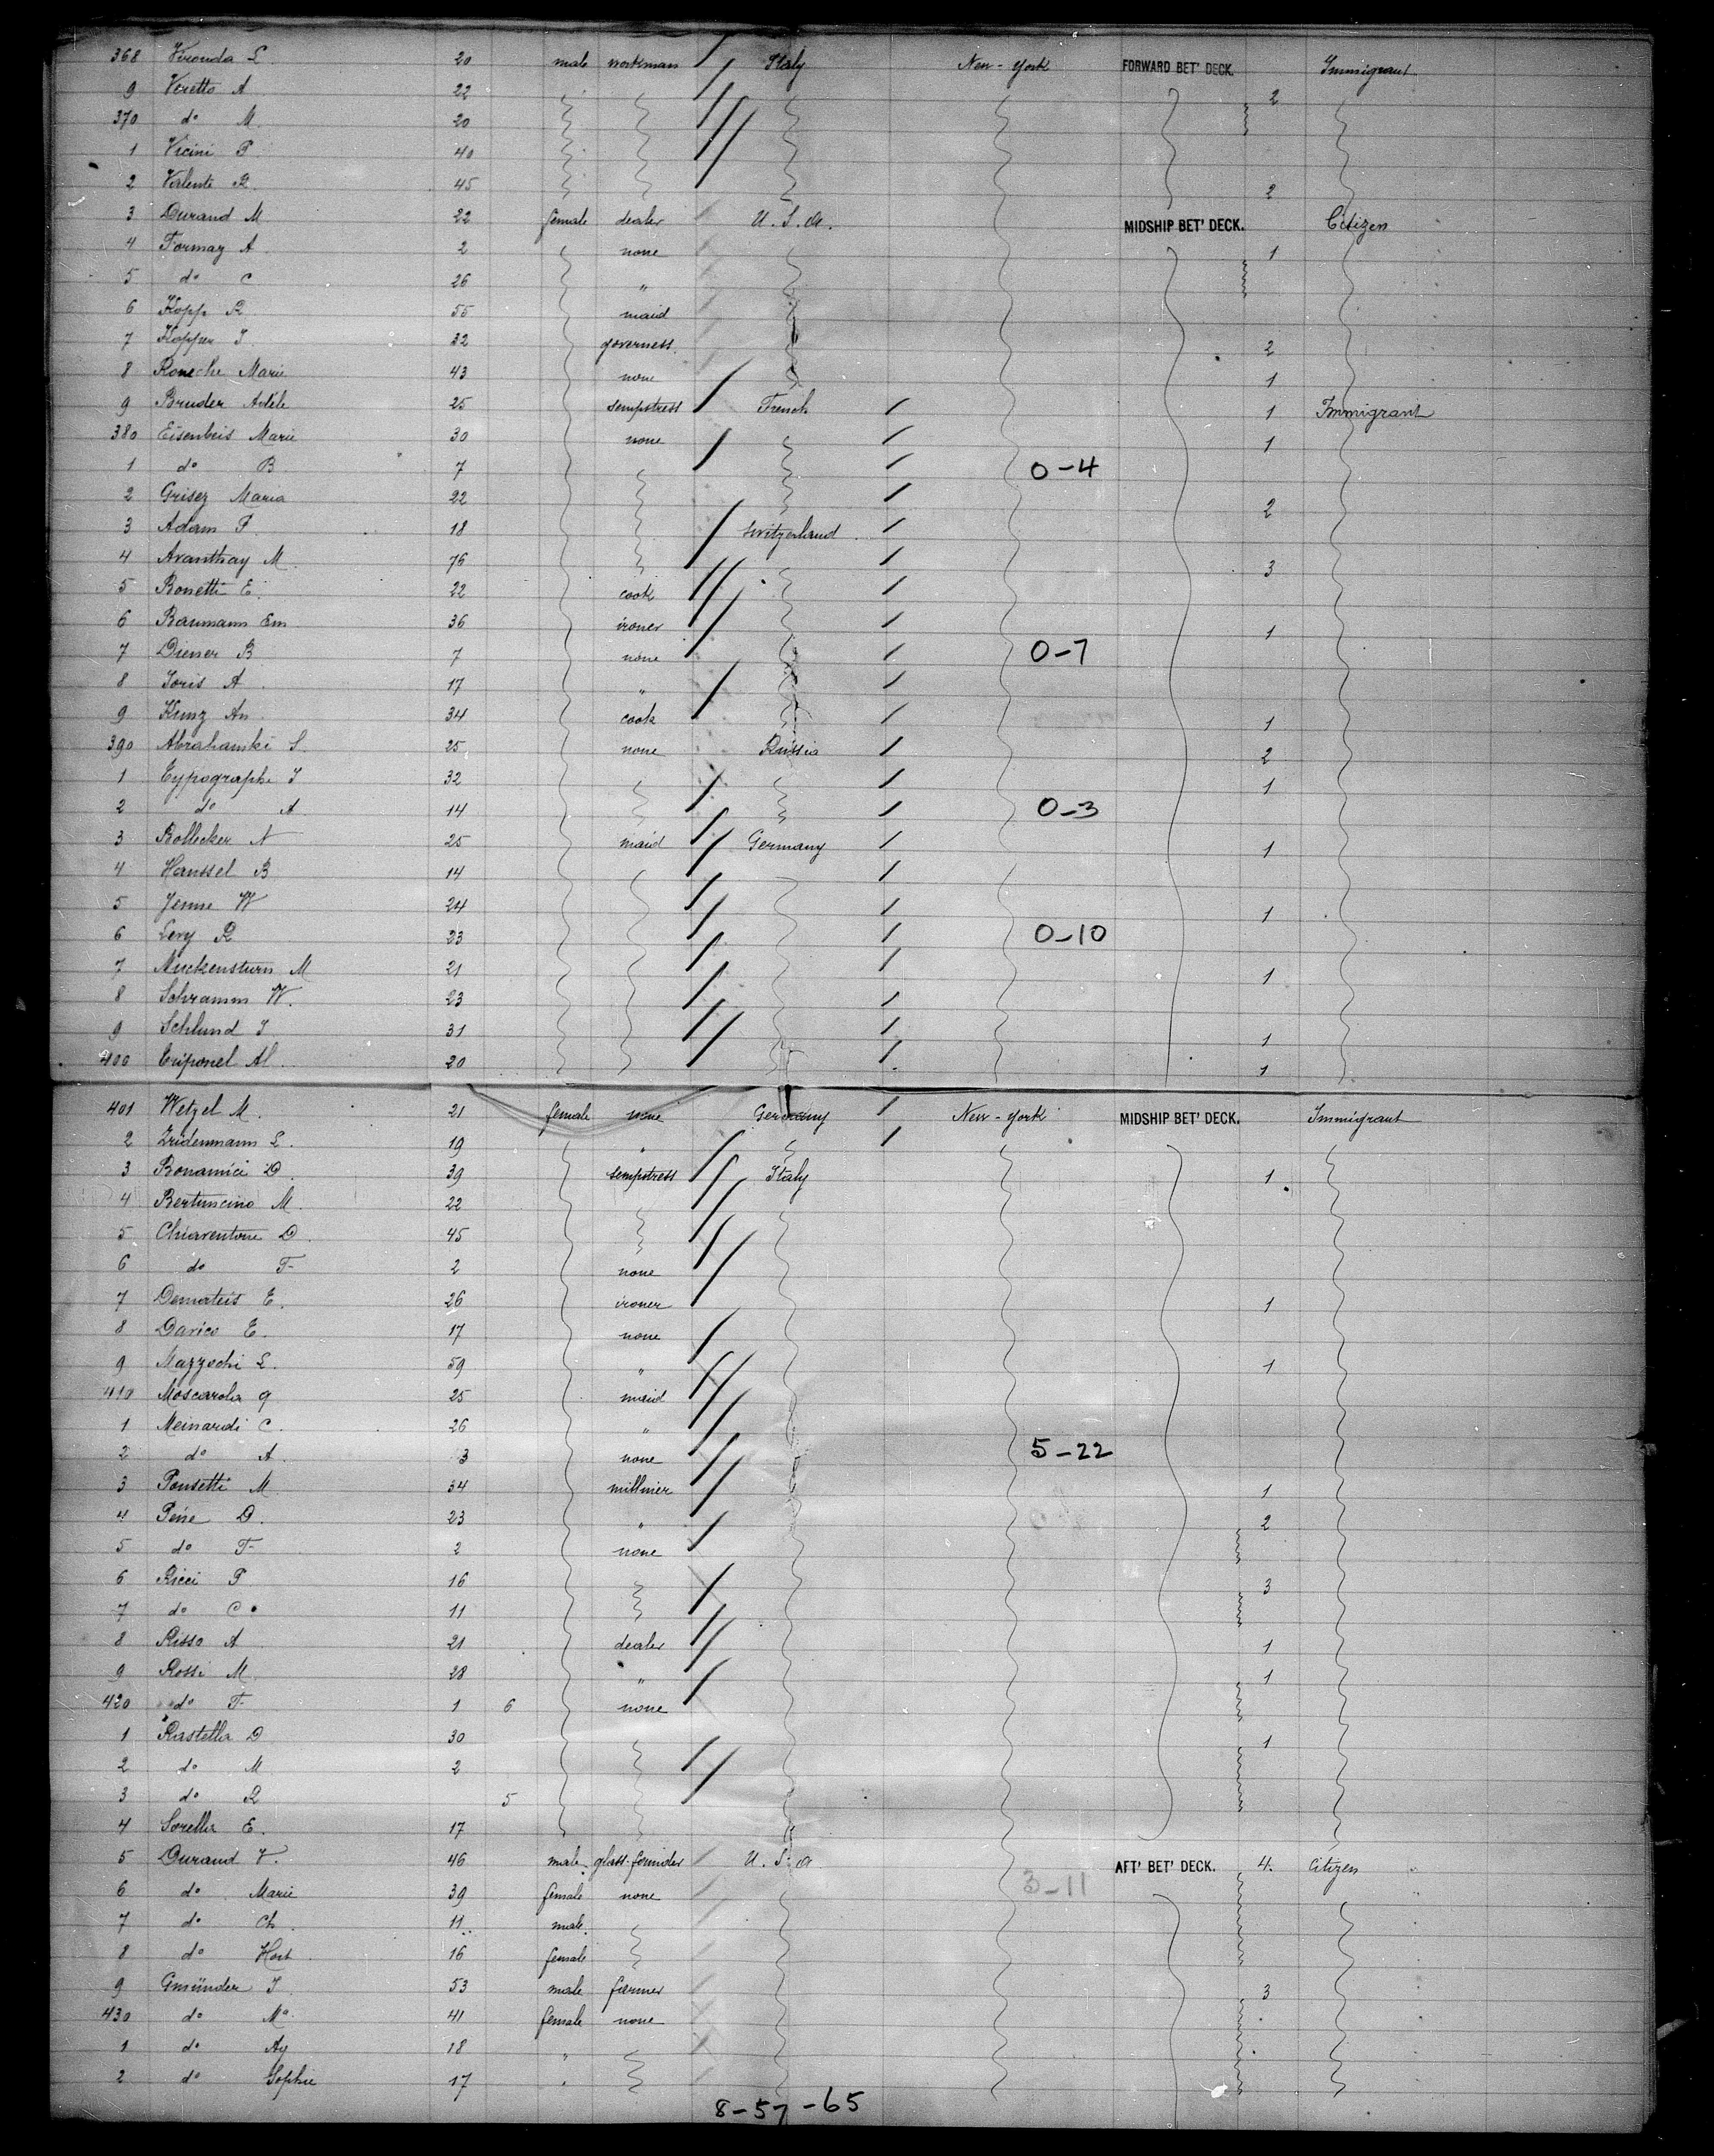 368 Vironda L. 20 male workman Italy New-York FORWARD BET' DECK. Immigrant
9 Veretto A 22 2
370 do M. 20
1 Vicini P. 40
2 Valenti R. 45 2
3 Durand M. 22 female dealer U. S. A. MIDSHIP BET' DECK. Citizen
4 Formaz A 2 none 1
5 do C 26 "
6 Kopp R. 55 maid
7 Kopper J. 32 governess. 2
8 Roneche Marie 43 none 1
9 Bruder Adèle 25 sempstress French 1 Immigrant
380 Eisenbeis Marie 30 none 1
1 do B. 7 0-4
2 Grisez Maria 22 2
3 Adam P. 18 Switzerland
4 Avanthay M. 76 3
5 Bonetti E. 22 cook
6 Baumann Em. 36 ironer 1
7 Diener B 7 none 0-7
8 Joris A 17 "
9 Kunz An. 34 cook 1
390 Abrahamski S. 25 none Russia 2
1 Typographe J 32 1
2 do A. 14 0-3
3 Bollecker N 25 maid Germany 1
4 Hanssel B 14
5 Jenne W 24 1
6 Levy R 23 0-10
7 Muckensturn M 21 1
8 Schramm W. 23
9 Schlund J 31 1
400 Triponel Al. 20 1
401 Wetzel M. 21 female none Germany New-York MIDSHIP BET' DECK. Immigrant
2 Zridenmann L. 19 "
3 Bonamici D. 39 sempstress Italy 1
4 Bertuncino M. 22
5 Chiaventone D. 45
6 do F. 2 none
7 Demateis E. 26 ironer 1
8 Darico E. 17 none
9 Mazzochi L. 59 " 1
410 Moscarola G 25 maid
1 Meinardi C. 26 "
2 do A. 3 none 5-22
3 Ponsetti M. 34 milliner 1
4 Péne D. 23 " 2
5 do F. 2 none
6 Ricci P 16 3
7 do C. 11
8 Risso A 21 dealer 1
9 Rossi M. 28 " 1
420 do F. 1 6 none
1 Rastella D 30 1
2 do M 2
3 do R 5
4 Sorella E. 17
5 Durand V. 46 male. glass-founder U. S. A AFT' BET' DECK. 4. Citizen
6 do Marie 39 female none 3-11
7 do Ch. 11 male
8 do Hort. 16 female
9 Gmünder J 53 male farmer 3
430 do Ma. 41 female none
1 do Ag 18 "
2 do Sophie 17 "
8-57-65